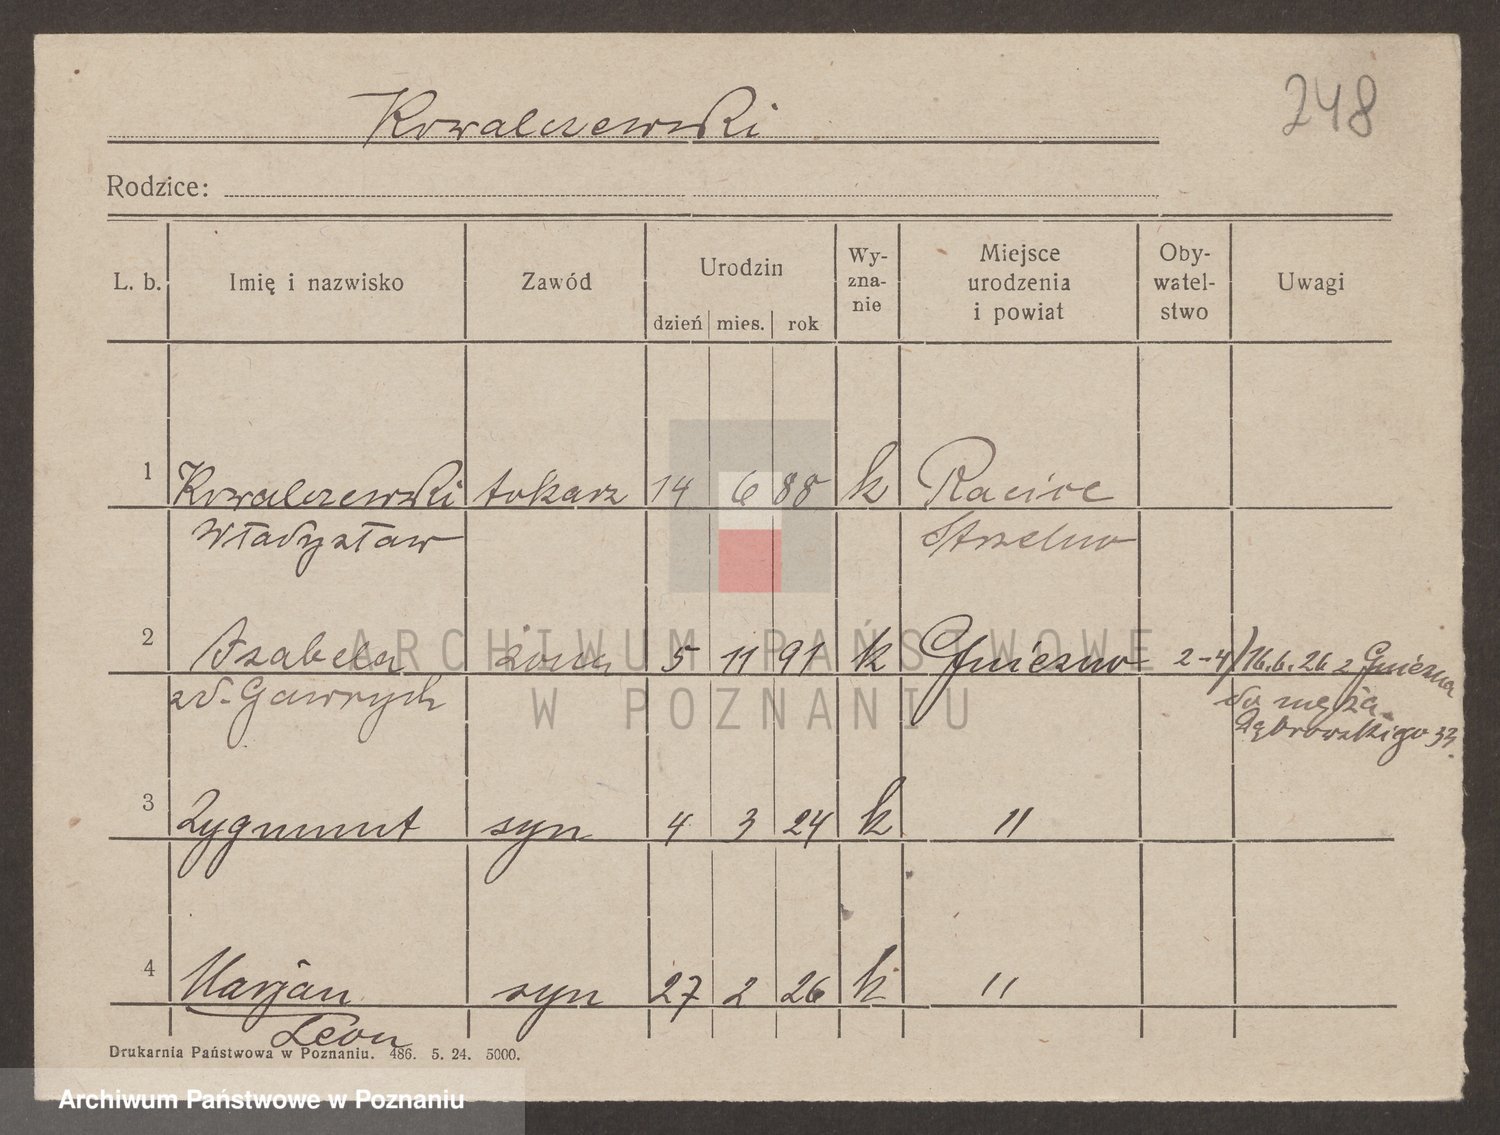 248
Kowalczewski
Rodzice:
L. b. Imię i nazwisko Zawód Urodzin dzień mies. rok Wy-zna-nie Miejsce urodzenia i powiat Oby-watel-stwo Uwagi
1 Kowalczewski tokarz 14 6 88 k Racice
Władysław Strzelno
2 Izabela żona 5 11 91 k Gniezno 2-4) 16.6.26 z Gniezna
zd. Gawrych do męża
Dąbrowskiego 33.
3 Zygmunt syn 4 3 24 k "
4 Marjan syn 27 2 26 k "
Leon
Drukarnia Państwowa w Poznaniu. 486. 5. 24. 5000.
ARCHIWUM PAŃSTWOWE
W POZNANIU
Archiwum Państwowe w Poznaniu